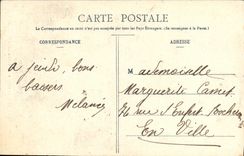 CARTE POSTALE
La Correspondance au recto n'est pas acceptée par tous les Pays Étrangers. (Se renseigner à la Poste.)
CORRESPONDANCE
ADRESSE
à jeudi, bons
baisers
Mélanie
Mademoiselle
Marguerite
En Ville